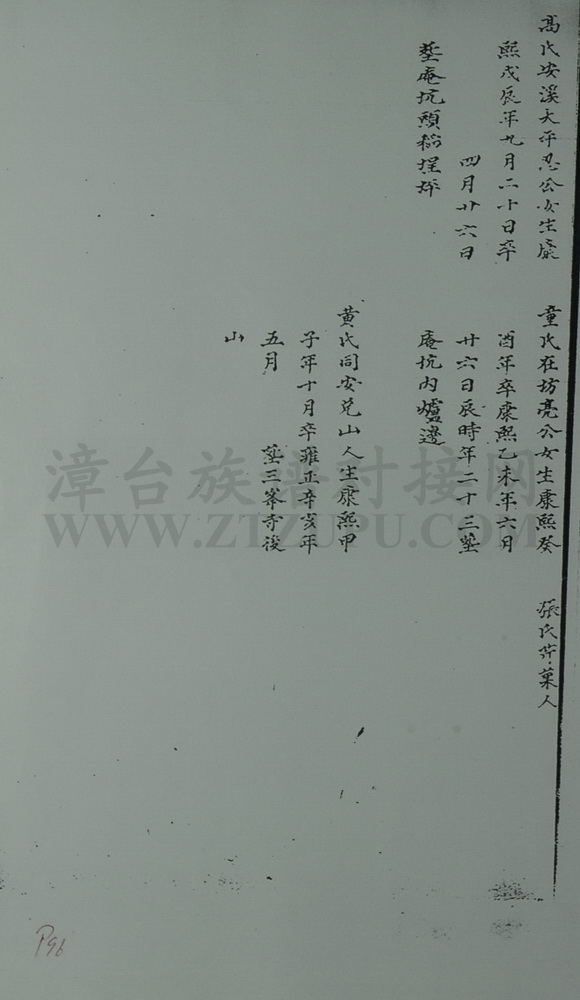 高氏安溪大平忍公女生康
熙戊辰年九月二十日卒
四月廿六日
塟庵坑頭粉埕
童氏在坊亮公女生康熙癸
酉年卒康熙乙未年六月
廿六日辰時年二十三塟
庵坑內爐邊
黃氏同安兌山人生康熙甲
子年十月卒雍正辛亥年
五月 塟三峯寺後
山
張氏芹菓人
漳台族譜对接网
WWW.ZTZUPU.COM
P96